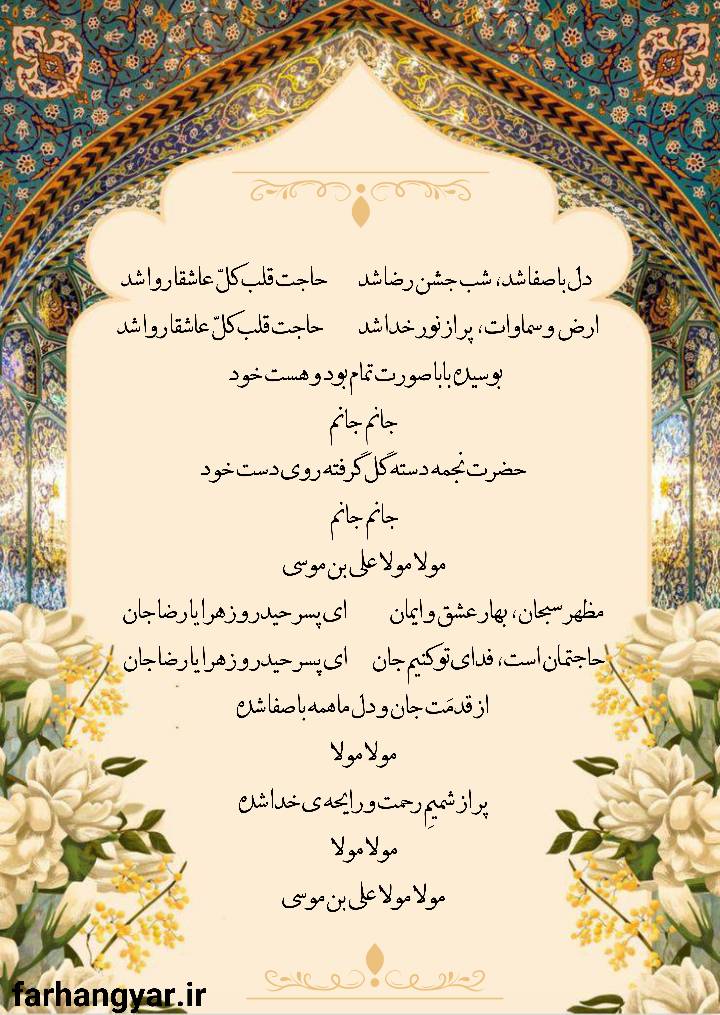 دل باصفا شد، شب جشن رضا شد حاجت قلب کلّ عاشقا روا شد
ارض و سماوات، پر از نور خدا شد حاجت قلب کلّ عاشقا روا شد
بوسیده بابا صورت تمام بود و هست خود
جانم جانم
حضرت نجمه دسته گل گرفته روی دست خود
جانم جانم
مولا مولا علی بن موسی
مظهر سبحان، بهار عشق و ایمان ای پسر حیدر و زهرا یا رضا جان
حاجتمان است، فدای تو کنیم جان ای پسر حیدر و زهرا یا رضا جان
از قدمَت جان و دل ما همه باصفا شده
مولا مولا
پر از شمیمِ رحمت و رایحه ی خدا شده
مولا مولا
مولا مولا علی بن موسی
farhangyar.ir